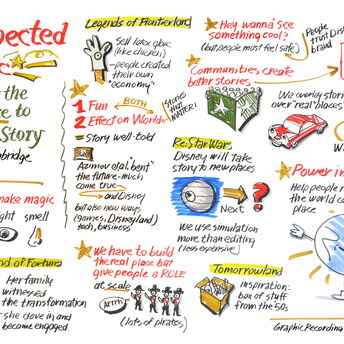 pected
the
e to
Story
bridge
make magic
ght smell
nd of Fortuna
Her family
witnessed
the transformation
she dove in and
became engaged.
Legends of Frontierland
Sell latex glove
(like chicken)
-people created
their own
"economy"
1 Fun
BOTH
2 Effect on World
= Story well-told
STORIES
THAT
MATTER!
Asimov et al "bent"
the future-much
come true
and Disney
but also new ways
(games, Disneyland)
tech, business
We have to build
the real place but
give people a ROLE
at scale
Arrrh
(lots of pirates)
Hey wanna see
something cool?
(but people must feel safe)
People
trust Dis
brand
Communities create
better stories
We overlay stori
over "real" places
Re: Star Wars
Disney will take
story to new places
Next
?
We use simulation
more than editing
(less expensive)
Power in
Help people
the world c
place
Tomorrowland
inspiration:
box of stuff
from the 50s
Graphic Recording